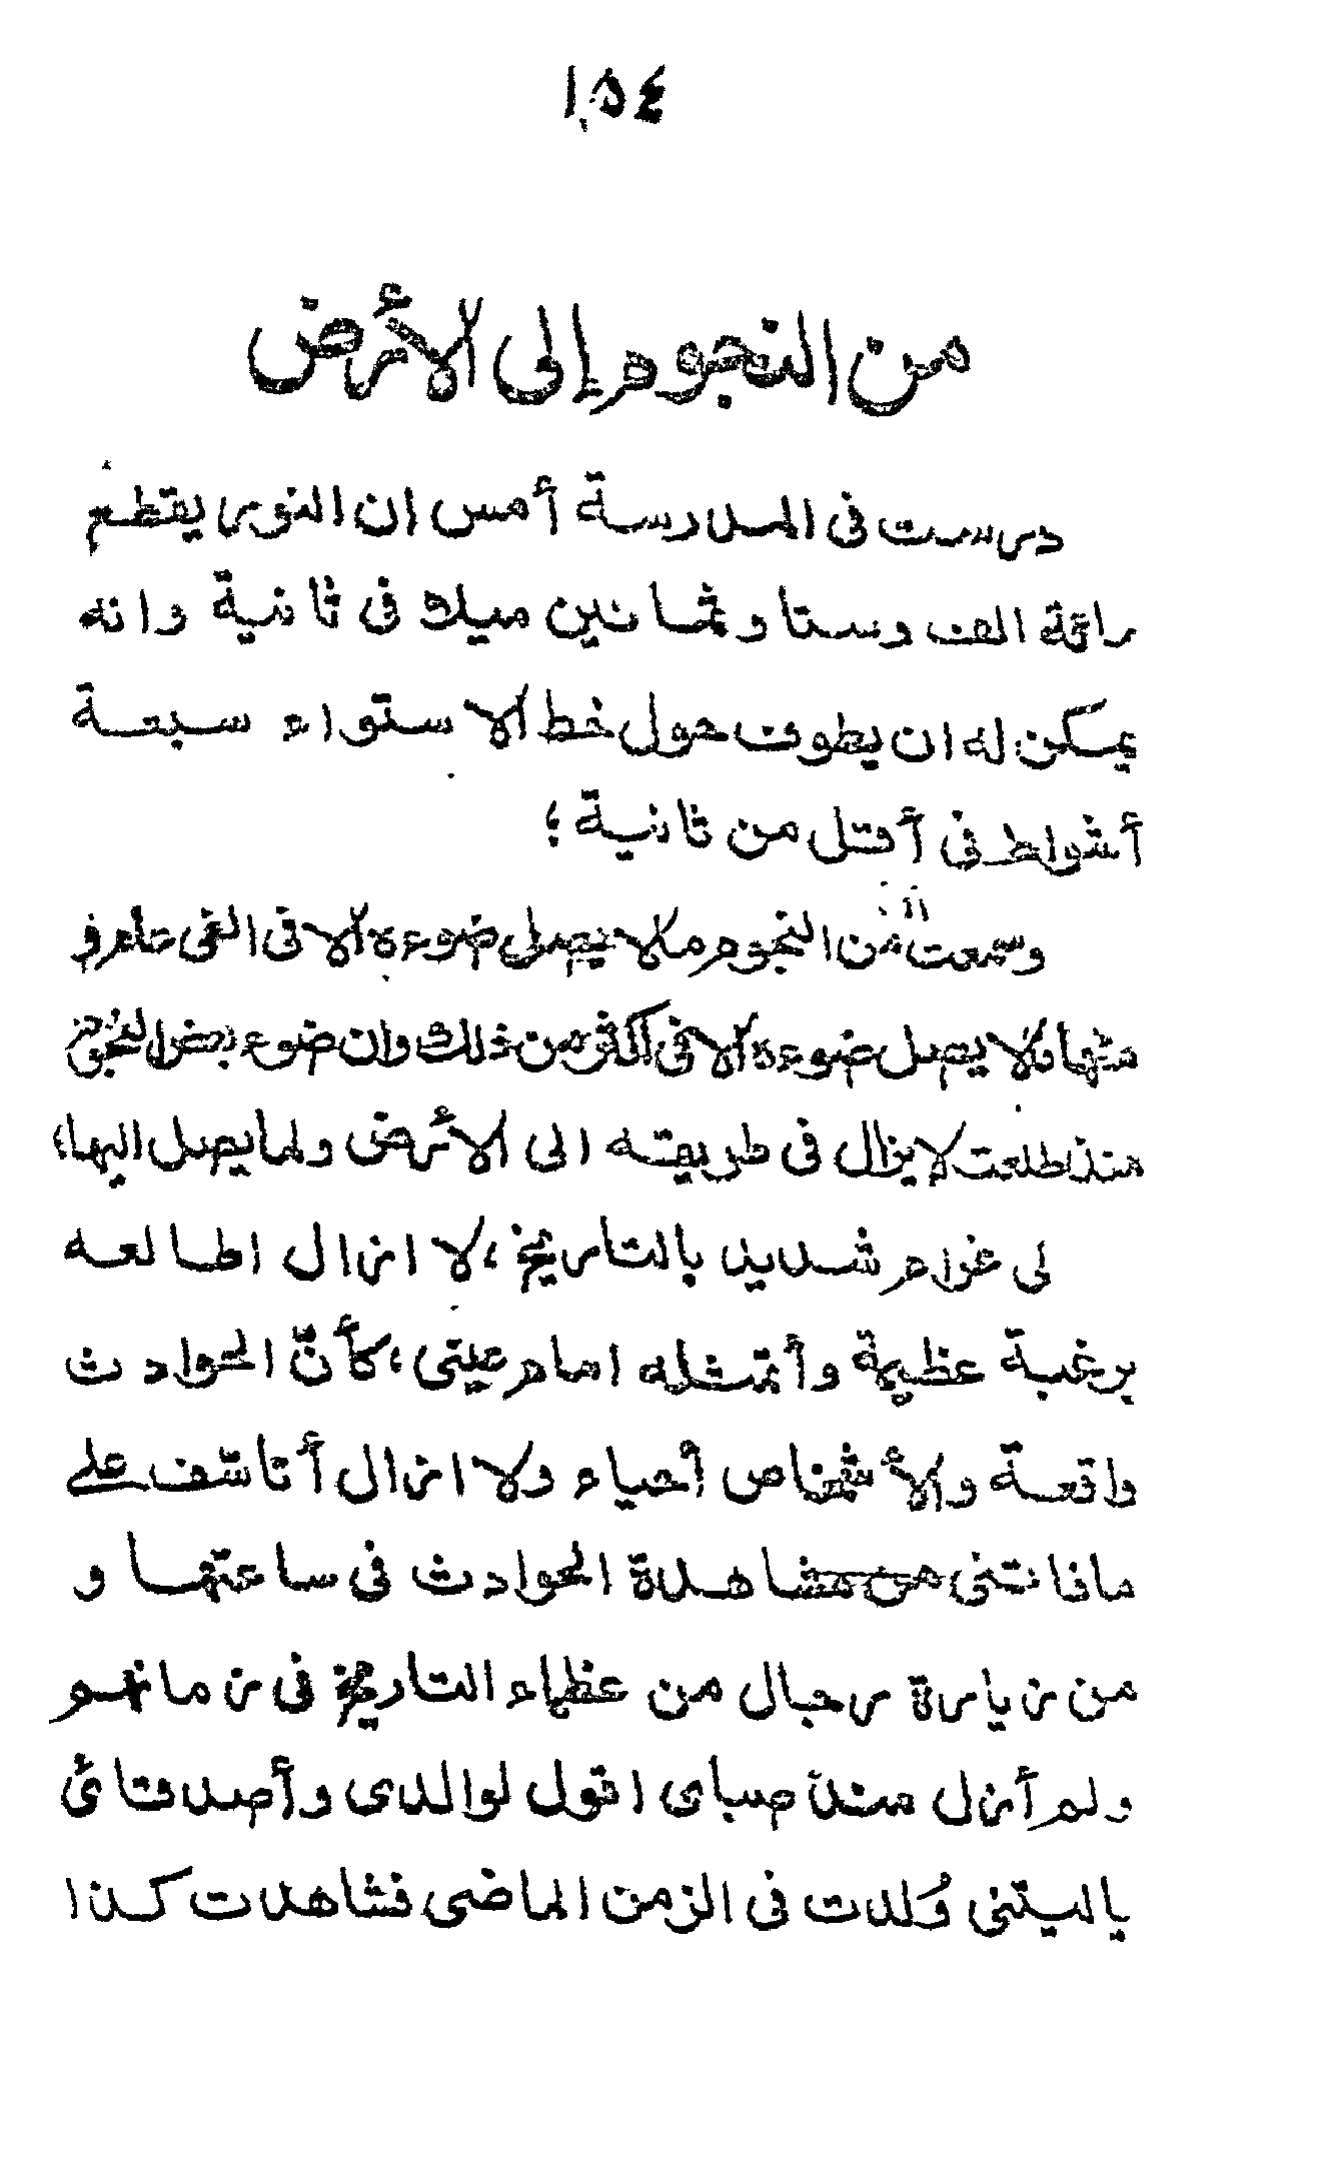 ١٥٤
من النجوم إلى الأرض
درست في المدرسة أمس ان النور يقطع
رائة الف وستا وثمانين ميلا في ثانية وانه
يمكن له ان يطوف حول خط الاستواء سبعة
أشواط في أقل من ثانية؛
وسمعت ان من النجوم ملا يصل ضوءه الا فى الفى عام و
منها ملا يصل ضوءه الا فى اكثر من ذلك وان ضوء بعض النجوم
منذ طلعت لا يزال فى طريقه الى الأرض ولما يصل اليها؛
لى غرام شديد بالتاريخ، لا ازال اطالعه
برغبة عظيمة وأتمثله امام عينى؛ كأنّ الحوادث
واقعة والأشخاص أحياء ولا ازال أتاسّف على
مافاتنى من مشاهدة الحوادث فى ساعتها و
من زيارة رجال من عظماء التاريخ فى زمانهم
ولم أزل منذ صباى اقول لوالدى وأصدقائى
ياليتنى وُلدت فى الزمن الماضى فشاهدت كذا